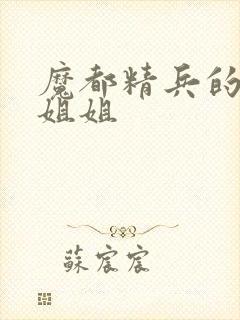 魔都精兵的
姐姐
蘇宸宸